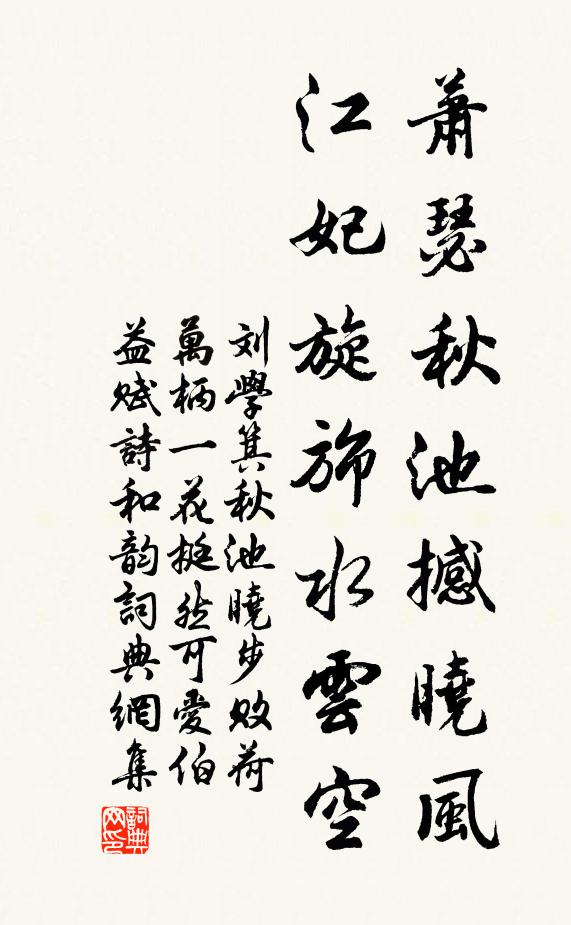 蕭瑟秋池撼曉風
江妃旋旆水雲空
刘學箕秋池曉步敗荷
萬柄一花挺然可愛伯
益賦詩和韵詞典網集
詞典
网印